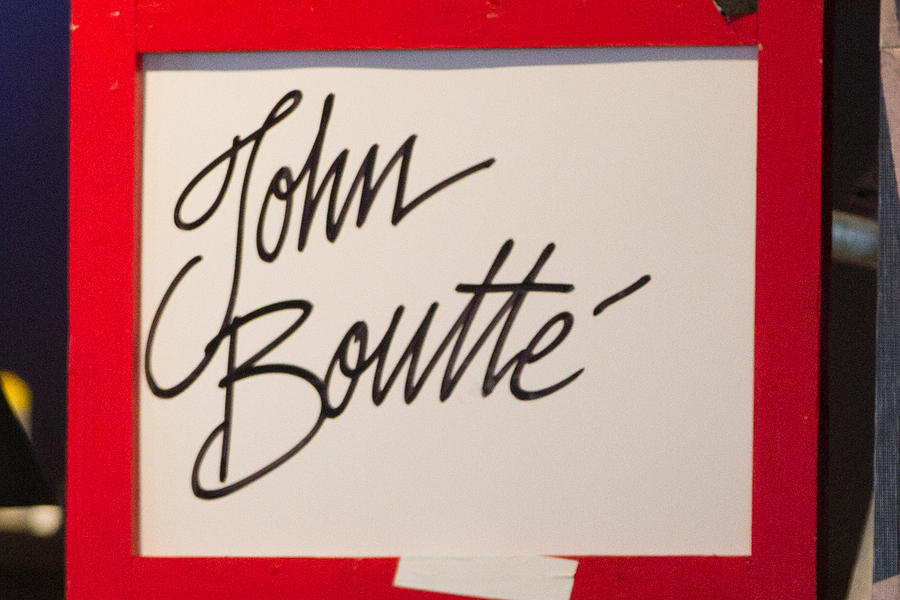 John
Boutté